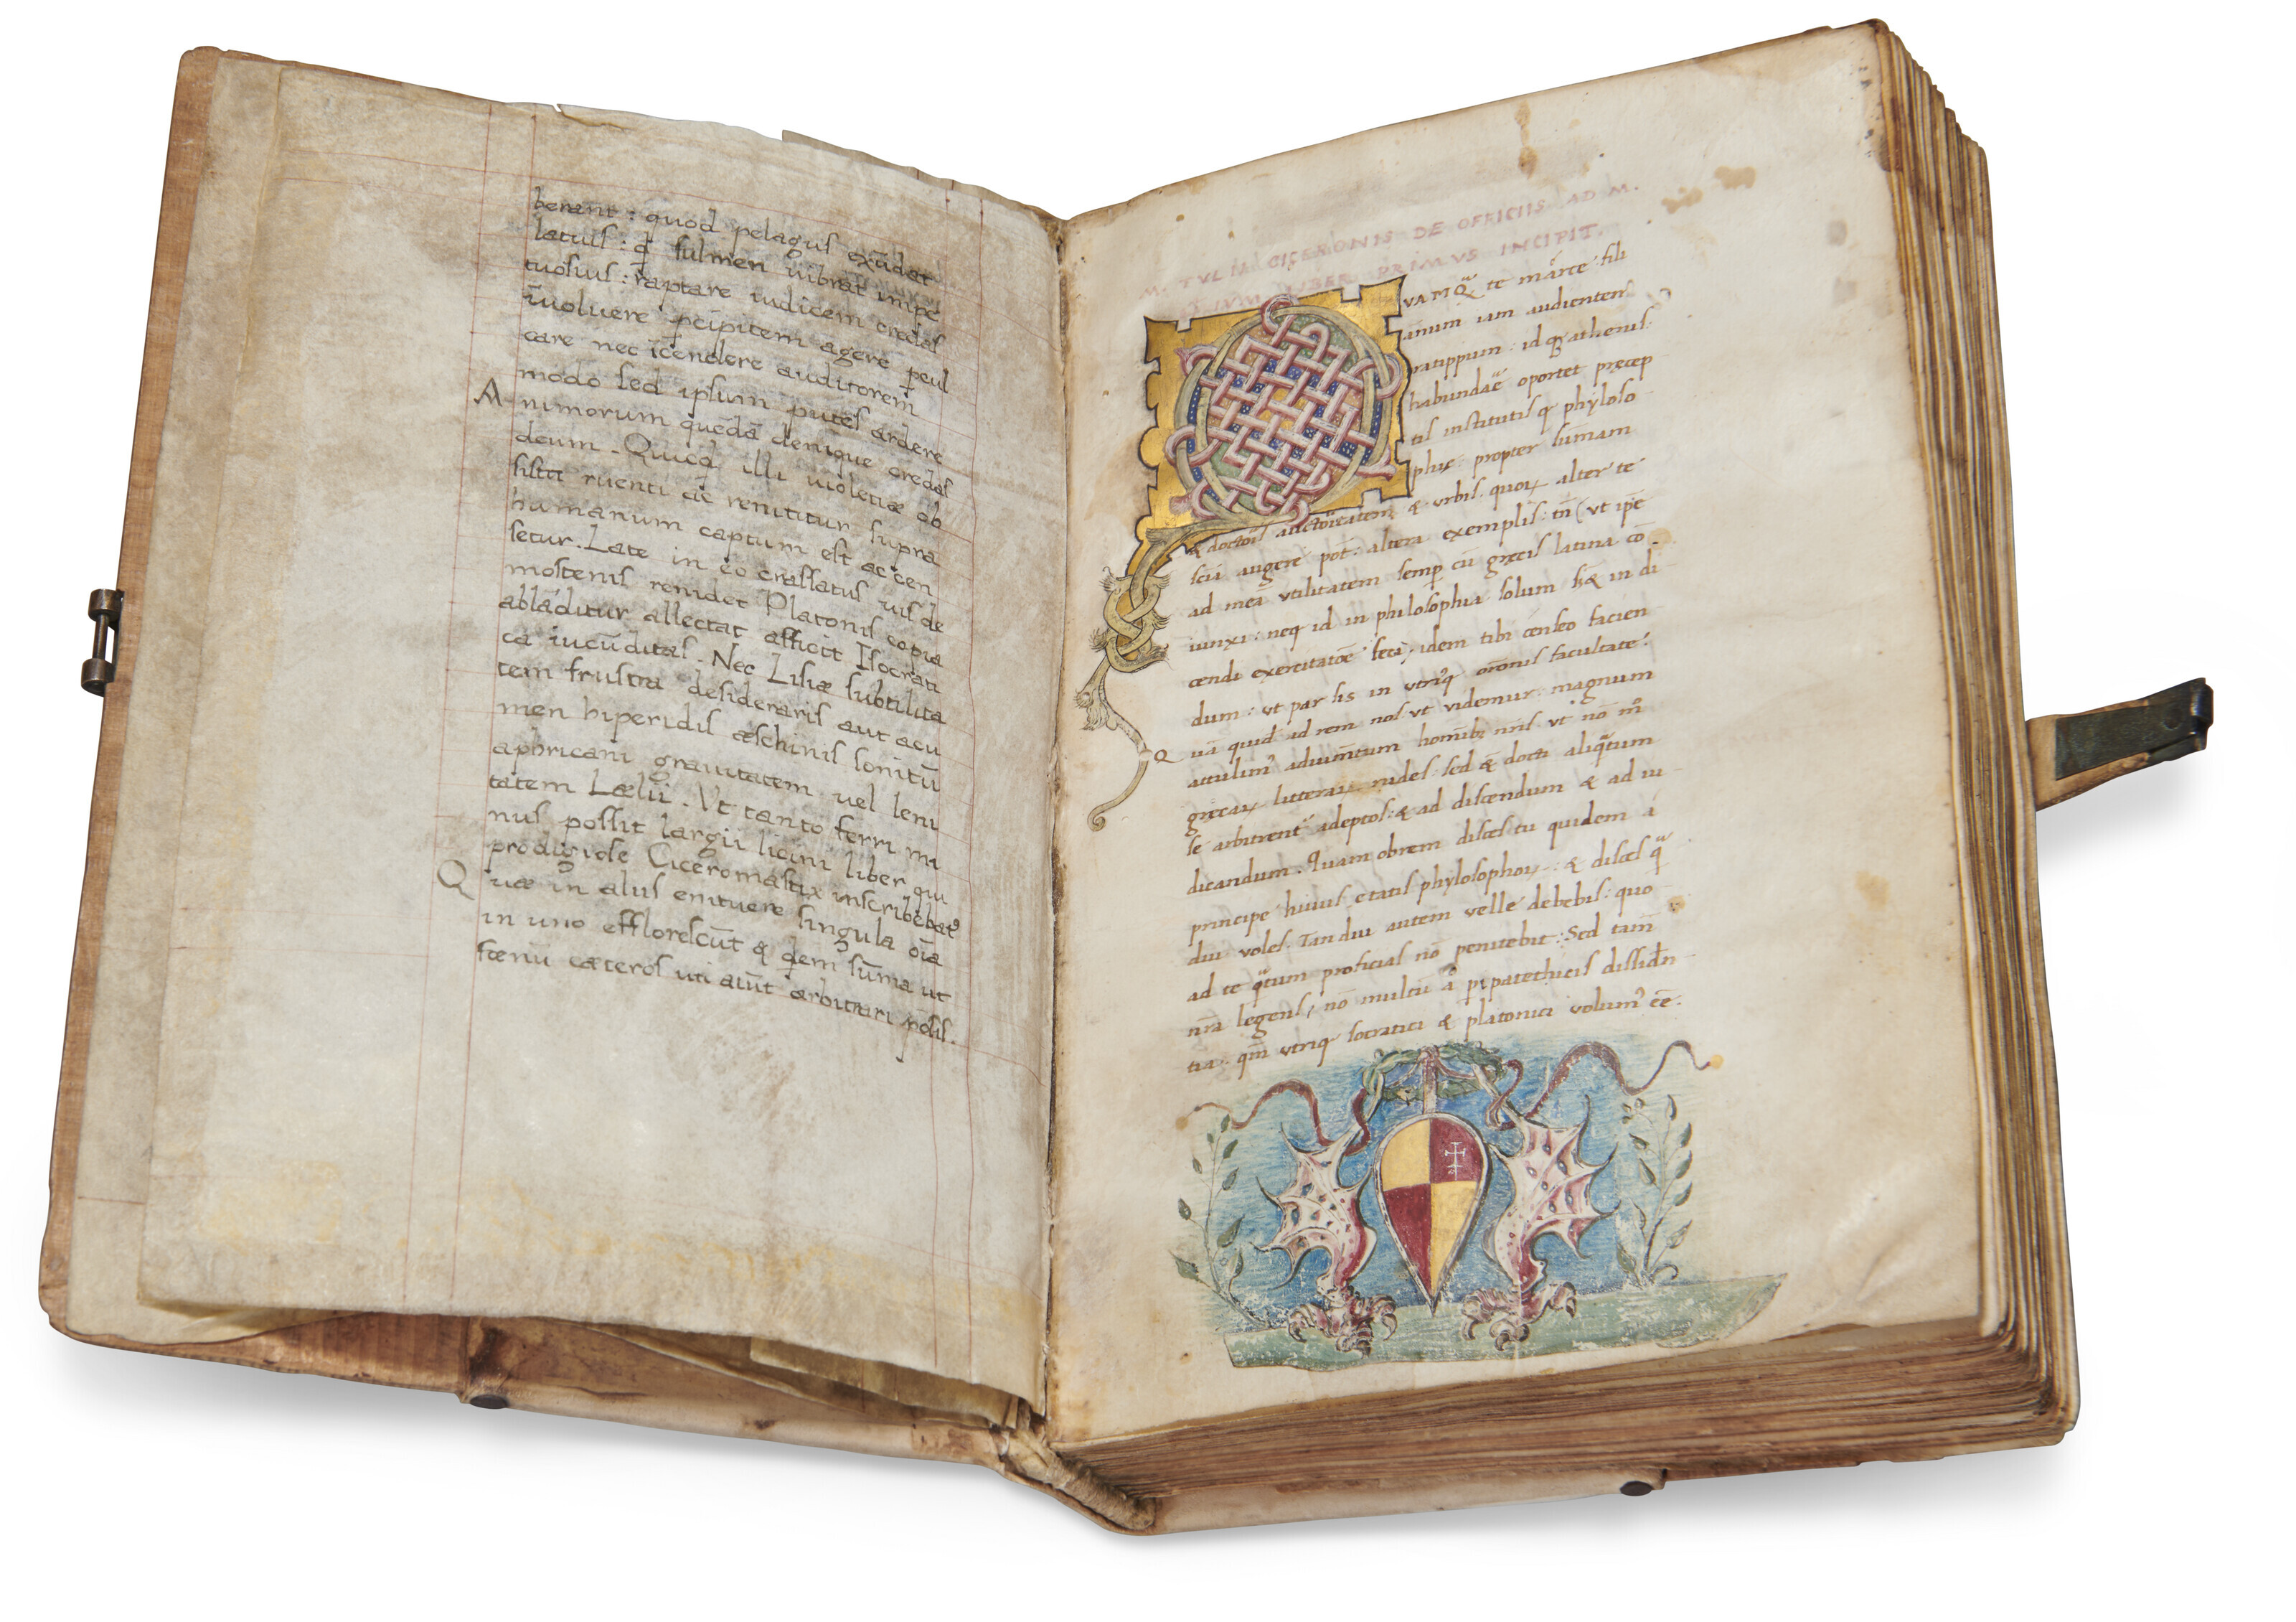 berant : quod pelagus exūdat
latius : q̄ fulmen uibrat impe
tuosius : raptare iudicem credas
īuoluere pcipitem agere peul
care nec īcendere auditorem
modo sed ipsum putes ardere
Animorum quēdā denique credas
deum . Quicq̄ illi uioletiæ ob
sistit ruenti āc renititur supra
humanum captum est accen
setur. Late in eo crassatus uis de
mostenis renidet Platonis copia
ablāditur allectat afficit Isocrati
ca iucūditas . Nec Lisiæ subtilita
tem frustra desideraris aut acu
men hiperidis æschinis sonitū
aphricani grauitatem uel leni
tatem Lælii . Vt tanto ferri mi
nus possit largii licini liber qui
prodigiose Ciceromastix inscribebat᷒
Quæ in aliis enituere singula oīa
in uno efflorescūt & q̄dem sūma ut
fœnū cæteros uti aiūt arbitrari possis.
M. TVLII CICERONIS DE OFFICIIS AD M.
LIBER PRIMVS INCIPIT.
QVAMQ̄ te marce fili
annum iam audientem
cratippum : id q athenis :
habundaē oportet precep
tis institutis q phyloso
phię : propter summam
& doctoris auctoritatem & vrbis . quoꝝ alter te
sciā augere pot : altera exemplis : tn̄ (vt ip̄e
ad meā vtilitatem semp cū gręcis latina cō
iunxi : neq id in philosophia solum sed in di
cendi exercitatōe feci, idem tibi censeo facien
dum : vt par sis in vtriq orōnis facultate .
Quā quid ad rem nos vt videmur magnum
attulim᷒ adiumētum homībus nr̄is vt nō mō
gręcaꝝ litteraꝝ rudes : sed & docti aliq̄tum
se arbitrent᷒ adeptos : & ad discendum & ad iu
dicandum . Quam obrem disces tu quidem ā
principe huius etatis phylosophoꝝ : & disces q̄
diu voles . Tan diu autem velle debebis : quo
ad te q̄tum proficias nō penitebit : Sed tam̄
nr̄a legens, nō multū ā pipatethicis dissidēn
tia . qm̄ vtriq socratici & platonici volum᷒ eē .